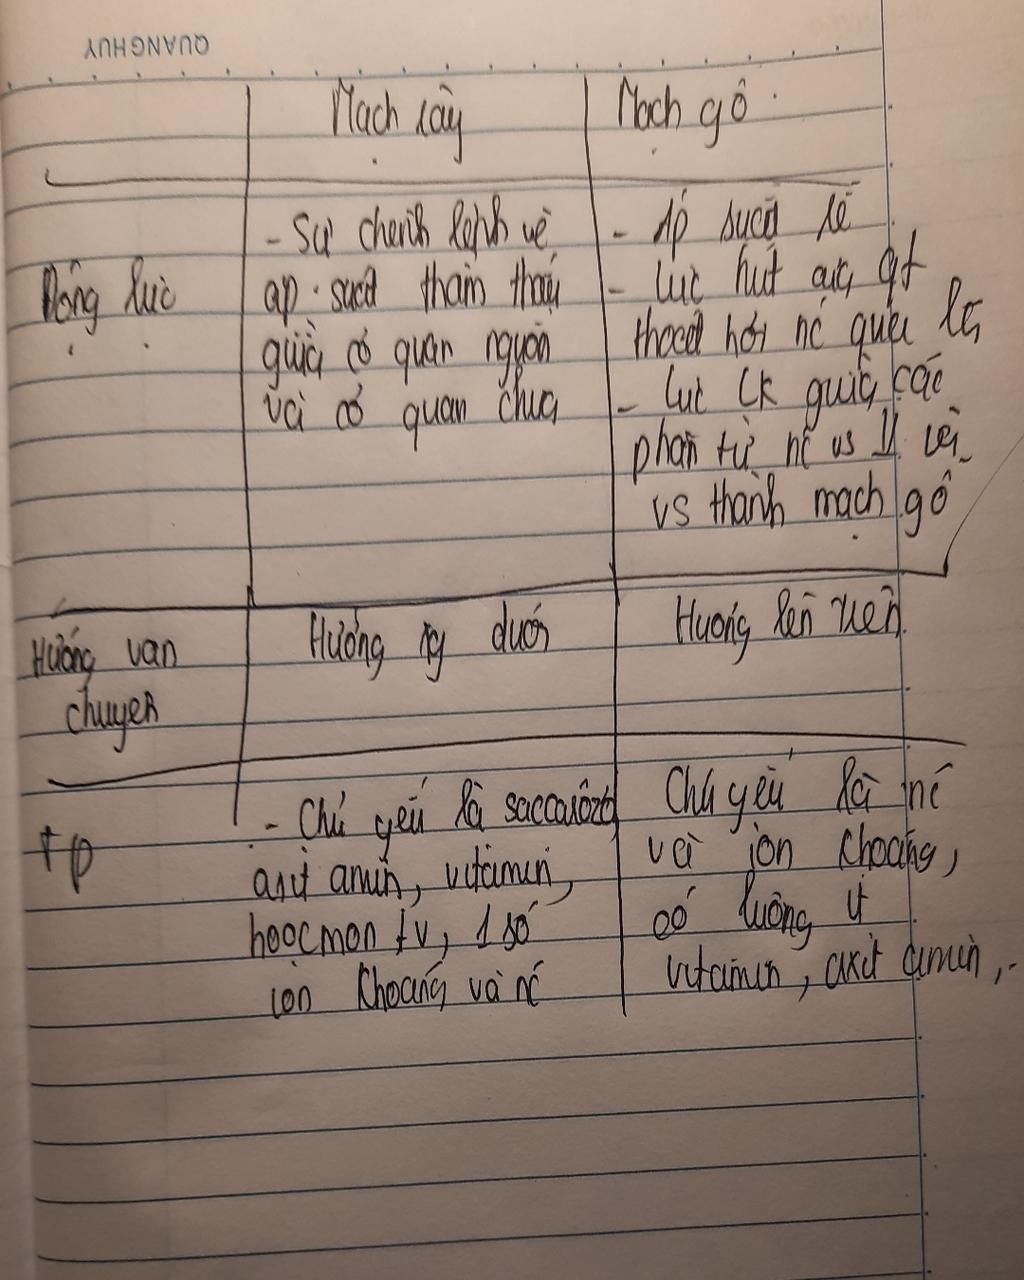 QUANGHUY
Mạch rây
Mạch gỗ
Động lực
- Sự chênh lệch về
áp suất thẩm thấu
giữa cơ quan nguồn
và cơ quan chứa
- Áp suất rễ
- Lực hút của qt
thoát hơi nc qua lá
- Lực LK giữa các
phân tử nc vs và
vs thành mạch gỗ
Hướng vận
chuyển
Hướng dưới
Hướng lên trên
tp
- Chủ yếu là saccarôzơ
axit amin, vitamin,
hoocmon tv, 1 số
ion khoáng và nc
Chủ yếu là nc
và ion khoáng,
có lượng ít
vitamin, axit amin,..